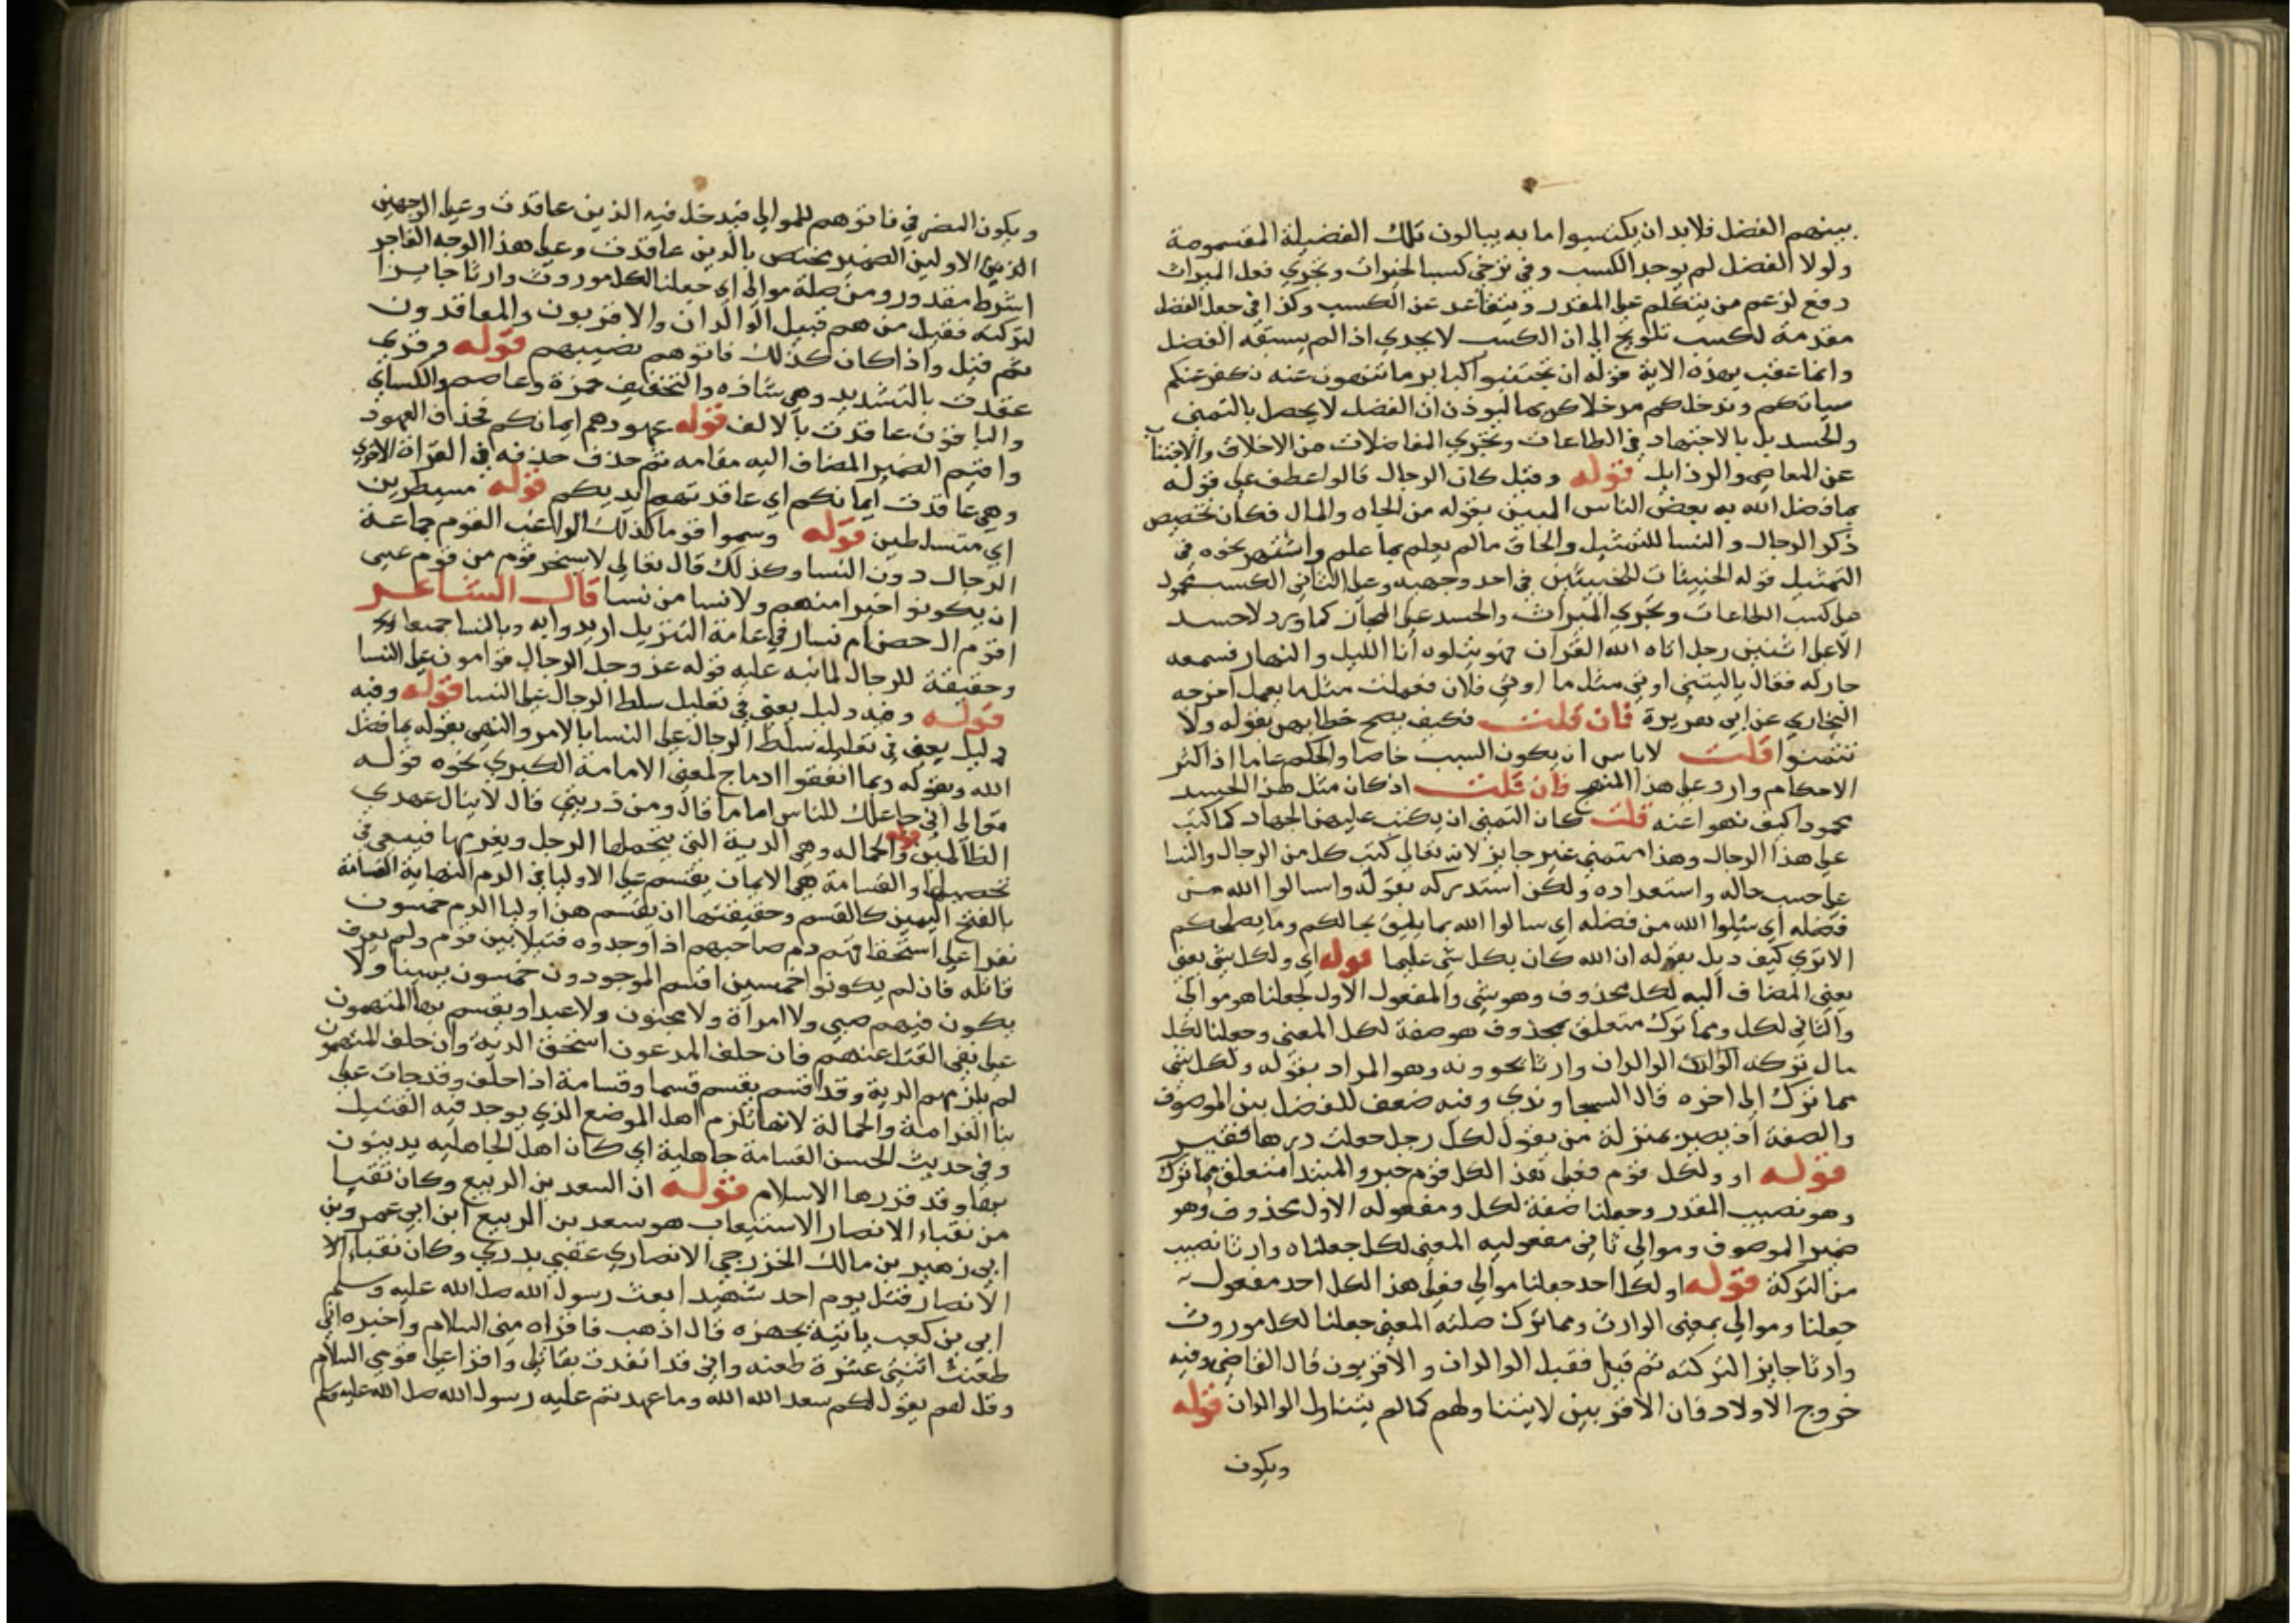 بينهم الفضل فلابد ان يكتسبوا ما به ينالون تلك الفضيلة المقسومة
ولولا الفضل لم يوجد الكسب وفي تركي كسب الخيرات وتحري فعل المبرات
دفع لزعم من يتكلم على المقدر ويتقاعد عن الكسب وكذا في جعل الفضل
مقدمة لكسب تلويح الى ان الكسب لا يجدي اذا لم يسبقه الفضل
وانما عقب بهذه الاية قوله ان تجتنبوا كباير ما تنهون عنه نكفر عنكم
سياتكم وندخلكم مدخلا كريما ليوذن ان الفضل لا يحصل بالتمني
والحسد بل بالاجتهاد في الطاعات وتحري المفاضلات من الاخلاق والاجتناب
عن المعاصي والرذايل قوله وقيل كان الرجال قالوا عطف على قوله
بما فضل الله به بعض الناس المبين بقوله من الجاه والمال فكان تخصيص
ذكر الرجال والنسا للتمثيل والحاق ما لم يعلم بما علم واشتهر نحوه في
التمثيل قوله الخبيثات للخبيثين في احد وجهيه وعلى الثاني الكسب محمول
على كسب الطاعات وتحري المبرات والحسد على المجاز كما ورد لا حسد
الا على اثنين رجل اتاه الله القران فهو يتلوه انا الليل والنهار فسمعه
جار له فقال ياليتني اوتيت مثل ما اوتي فلان فعملت مثل ما يعمل اخرجه
البخاري عن ابي هريرة فان قلت فكيف يصح خطابهن بقوله ولا
تتمنوا قلت لا باس ان يكون السبب خاصا والحكم عاما اذ اكثر
الاحكام وارد على هذا المنهج فان قلت اذ كان مثل هذا الحسد
محمودا كيف نهوا عنه قلت كان التمني ان يكتب عليهن الجهاد كما كتب
على هذا الرجال وهذا متمني غير جايز لانه تعالى كتب كل من الرجال والنسا
على حسب حاله واستعداده ولكن استدركه بقوله واسالوا الله من
فضله اي سلوا الله من فضله اي سالوا الله بما يليق بحالكم وما يصلحكم
الا ترى كيف ذيل بقوله ان الله كان بكل شي عليما قوله اي ولكل شي يعني
يعني المضاف اليه لكل محذوف وهو شي والمفعول الاول لجعلنا هو موالي
والثاني لكل ومما ترك متعلق بمحذوف هو صفة لكل المعنى وجعلنا لكل
مال تركه الوالدان وارثا يحوونه وهو المراد بقوله ولكل شي
مما ترك الى اخره قال السجاوندي وفيه ضعف للفصل بين الموصوف
والصفة اذ يصير بمنزلة من يقول لكل رجل جعلت درهما فقير
قوله او ولكل قوم فعلى هذا لكل قوم خبر والمبتدا متعلق مما ترك
وهو نصيب المقدر وجعلنا صفة لكل ومفعوله الاول محذوف وهو
ضمير الموصوف وموالي ثاني مفعوليه المعنى لكل جعلناه وارثا نصيب
من التركة قوله او لكل احد جعلنا موالي فعلى هذا لكل احد مفعول
جعلنا وموالي بمعنى الوارث ومما ترك صلته المعنى جعلنا لكل موروث
وارثا جايز التركته ثم قيل فقيل الوالدان والاقربون قال القاضي وفيه
خروج الاولاد فان الاقربين لا يتناولهم كما لم يتناول الوالدان قوله
ويكون
ويكون الضمير في فاتوهم للموالي فيدخل فيه الذين عاقدت وعلى الوجهين
الاولين الضمير مختص بالذين عاقدت وعلى هذا الوجه الفاجر
الشرط مقدر ومن صلة موالي اي جعلنا لكل موروث وارثا جايزا
لتركته فقيل من هم فقيل الوالدان والاقربون والمعاقدون
ثم قيل واذا كان كذلك فاتوهم نصيبهم قوله وقرى
عقدت بالتشديد وهي شاذه والتخفيف حمزة وعاصم والكساي
والباقون عاقدت بالالف قوله عهودهم ايمانكم فحذف العهود
واقيم الضمير المضاف اليه مقامه ثم حذف حذفه في القراة الاخرى
وهي عاقدت ايمانكم اي عاقدتهم ايديكم قوله مسيطرين
اي متسلطين قوله وسموا قوما لذلك الراغب القوم جماعة
الرجال دون النسا وكذلك قال تعالى لا يسخر قوم من قوم عسى
ان يكونوا خيرا منهم ولا نسا من نسا قال الشاعر
اقوم ال حصن ام نسا وفي عامة التنزيل اريدوا به وبالنسا جميعا
وحقيقة للرجال لما نبه عليه قوله عز وجل الرجال قوامون على النسا
قوله وفيه دليل يعني في تعليل سلط الرجال على النسا قوله وفيه
دليل يعني في تعليله تسلط الرجال على النسا بالامر والنهي بقوله بما فضل
الله وبقوله وبما انفقوا ادماج لمعنى الامامة الكبرى نحوه قوله
تعالى اني جاعلك للناس اماما قال ومن ذريتي قال لا ينال عهدي
الظالمين قوله والحماله وهي الدية التي يتحملها الرجل ويغرمها فيسعى في
تحصيلها والقسامة هي الايمان يقسم على الاوليا في الدم النهاية القسامة
بالفتح اليمين كالقسم وحقيقتها ان يقسم من اوليا الدم خمسون
نفرا على استحقاقهم دم صاحبهم اذا وجدوه قتيلا بين قوم ولم يعرف
قاتله فان لم يكونوا خمسين اقسم الموجودون خمسون يمينا ولا
يكون فيهم صبي ولا امراة ولا مجنون ولا عبد او يقسم بها المتهمون
على نفي القتل عنهم فان حلف المدعون استحق الدية وان حلف المتهمون
لم يلزمهم الدية وقد اقسم يقسم قسما وقسامة اذا حلف وقد جات على
بنا الغرامة والحمالة لانها تلزم اهل الموضع الذي يوجد فيه القتيل
وفي حديث الحسن القسامة جاهلية اي كان اهل الجاهليه يدينون
بها وقد قررها الاسلام قوله ان السعد بن الربيع وكان نقيبا
من نقباء الانصار الاستيعاب هو سعد بن الربيع ابن ابي عمرو بن
ابي زهير بن مالك الخزرجي الانصاري عقبي بدري وكان نقباء الا
الانصار قتل يوم احد شهيدا بعث رسول الله صلى الله عليه وسلم
ابي بن كعب ياتية بخبره قال اذهب فاقراه مني السلام واخبره اني
طعنت اثنتي عشرة طعنه واني قد انفدت مقاتلي واقرا على قومي السلام
وقل لهم يقول لكم سعد الله الله وما عهدتم عليه رسول الله صلى الله عليه وسلم